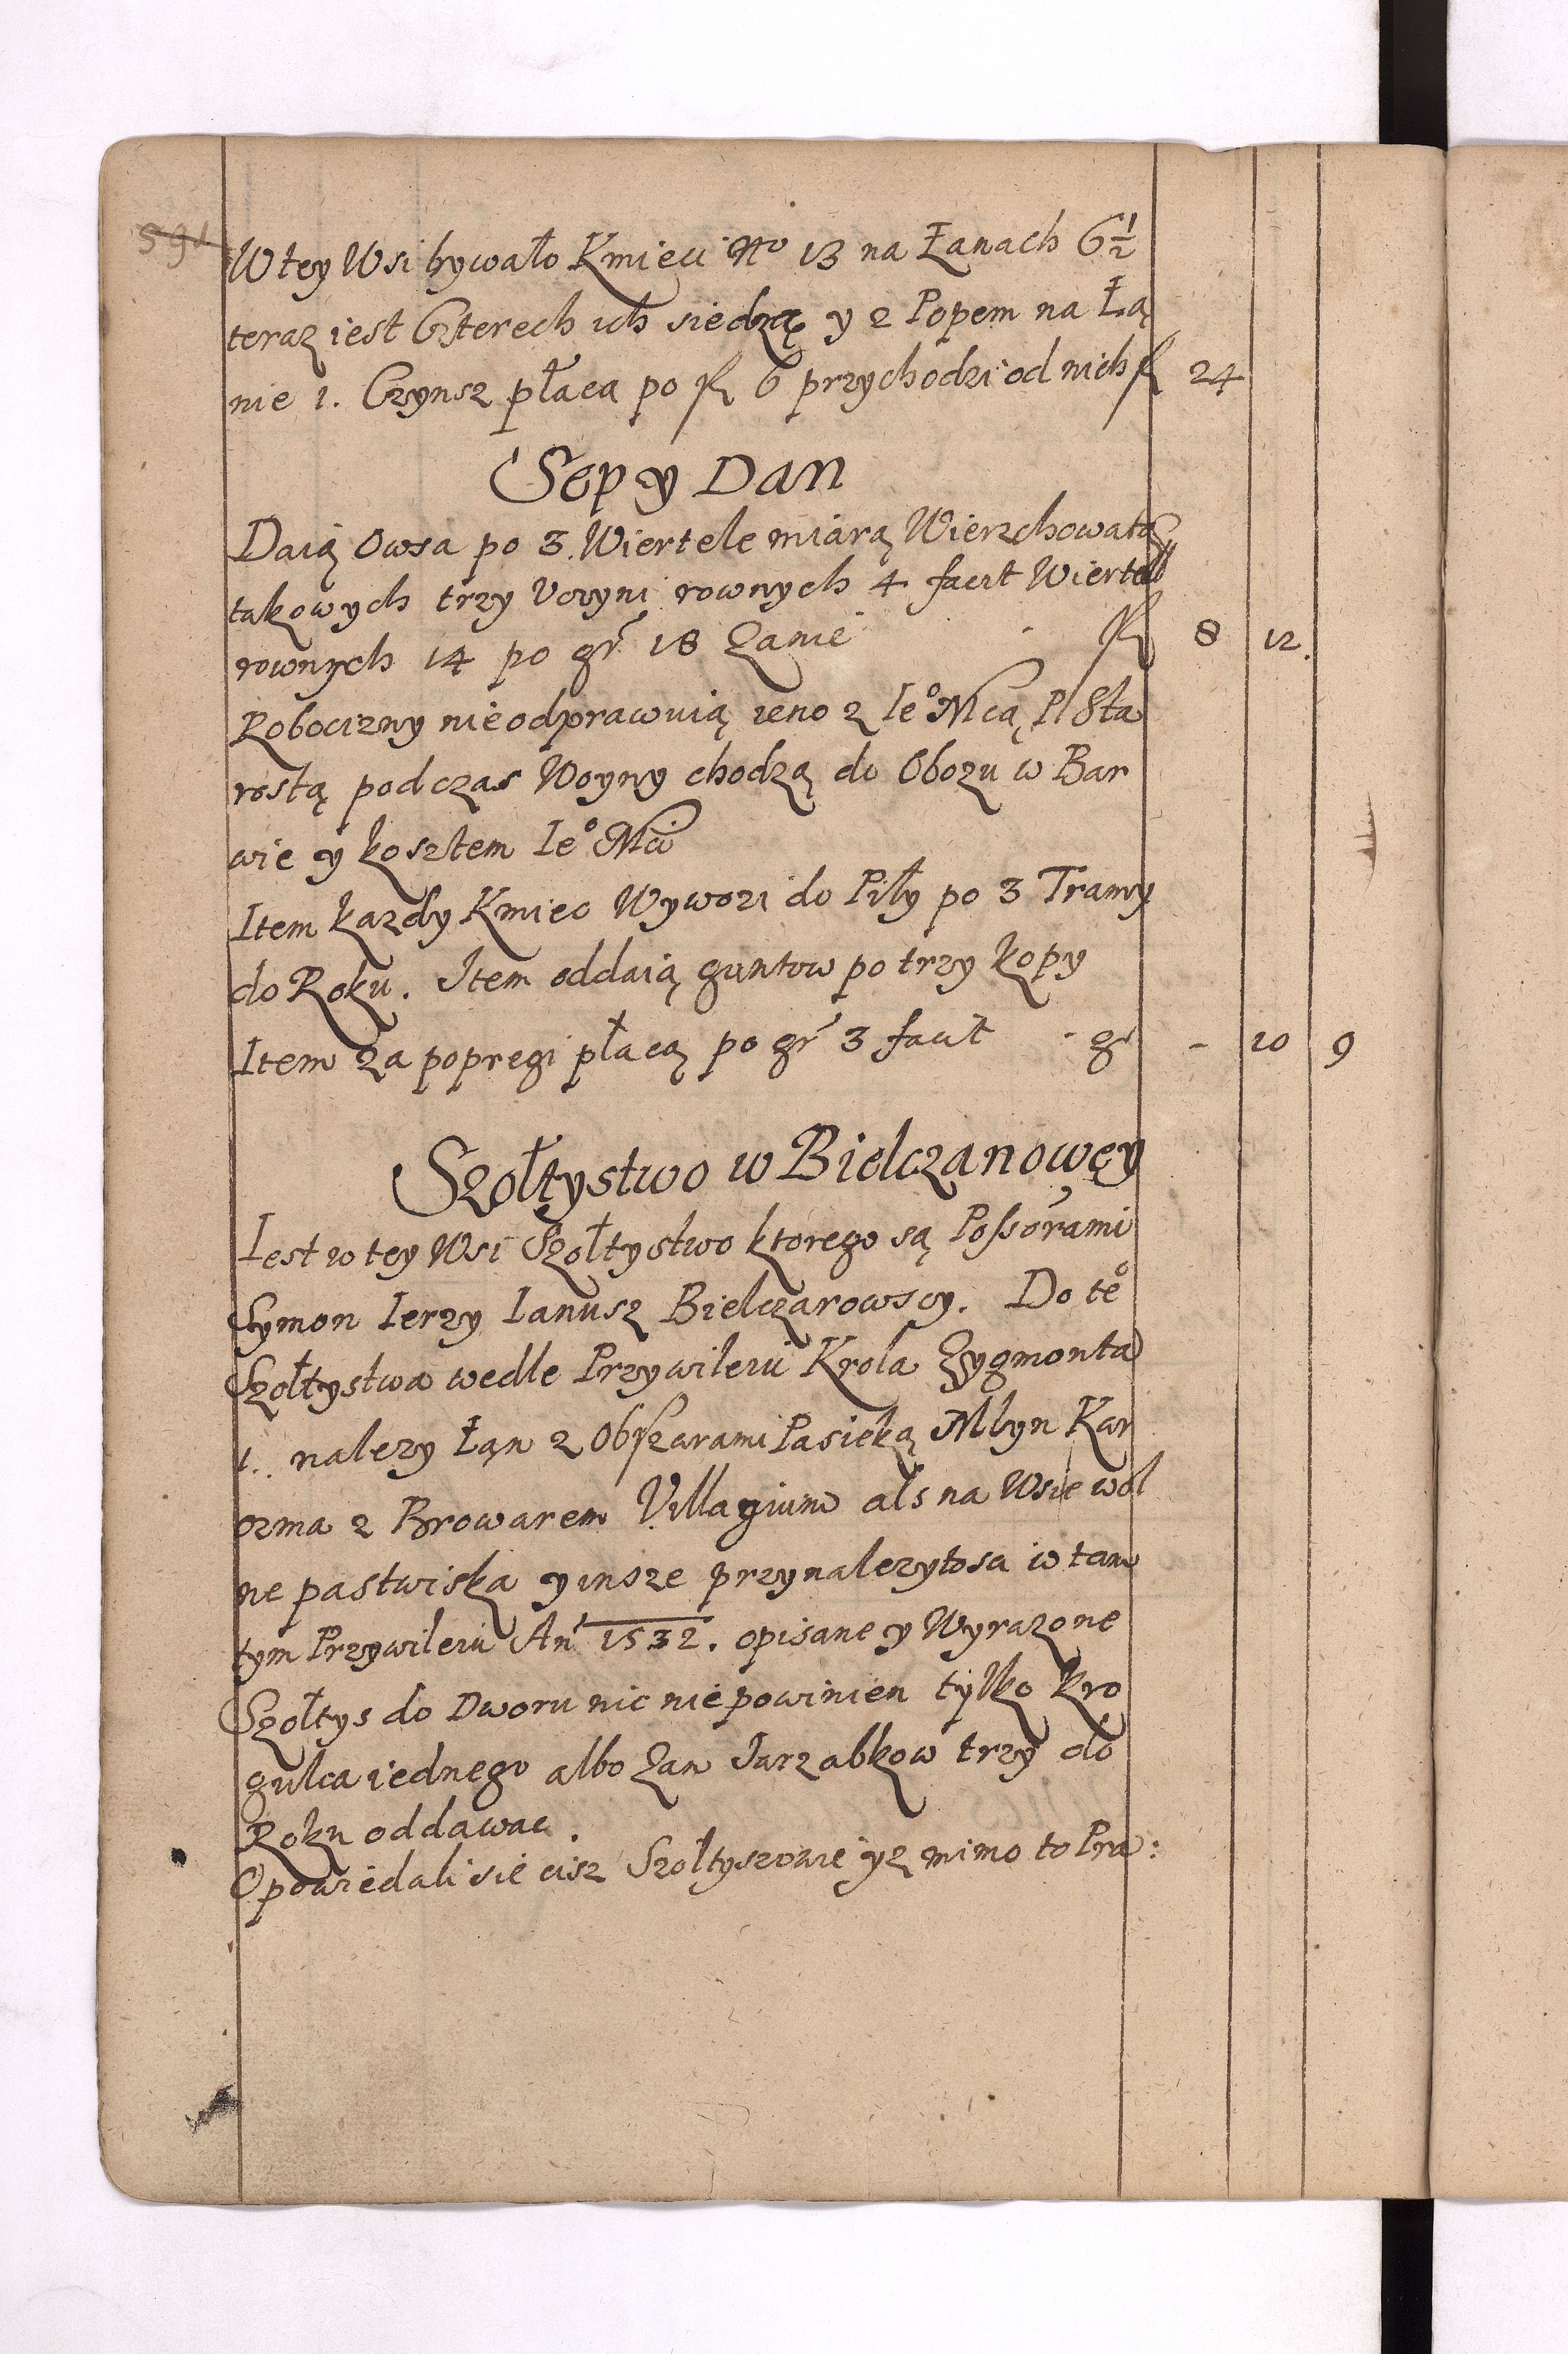 591
W tey Wsi bywało Kmieci No 13 na Łanach 6 1/2
teraz iest Czterech ich siedzą y z Popem na Łą
nie 1. Czynsz płaca po fl 6 przychodzi od nich fl 24
Sep y Dan
Daią Owsa po 3. Wiertele miarą Wierzchowatą
takowych trzy Uczyni rownych 4 facit Wiertel
rownych 14 po gr 18 Zanie fl 8 12.
Robocizny nie odprawuią ieno z Ieo Mcą P Sta
rostą podczas Woyny chodzą do Obozu w Bar
wie y kosztem Ieo Mci
Item kazdy Kmiec Wywozi do Piły po 3 Tramy
do Roku. Item oddaią guntow po trzy kopy
Item za popregi płacą po gr 3 facit - gr - 10 9
Szołtystwo w Bielczanowey
Iest w tey Wsi Szołtystwo ktorego są Possorami
Symon Ierzy Ianusz Bielczarowscy. Do teo
Szołtystwa wedle Przywileiu Krola Zygmonta
1. nalezy Łan z Obszarami Pasieką Młyn Kar
czma z Browarem Villagium als na Wsie wol
ne pastwiska y insze przynalezytosci w tam
tym Przywileiu An 1532. opisane y Wyrazone
Szołtys do Dworu nic nie powinien tylko kro
gulca iednego albo Zan Jarzabkow trzy do
Roku oddawac.
Opowiedali sie cisz Szołtyszowie yz mimo to Pra: